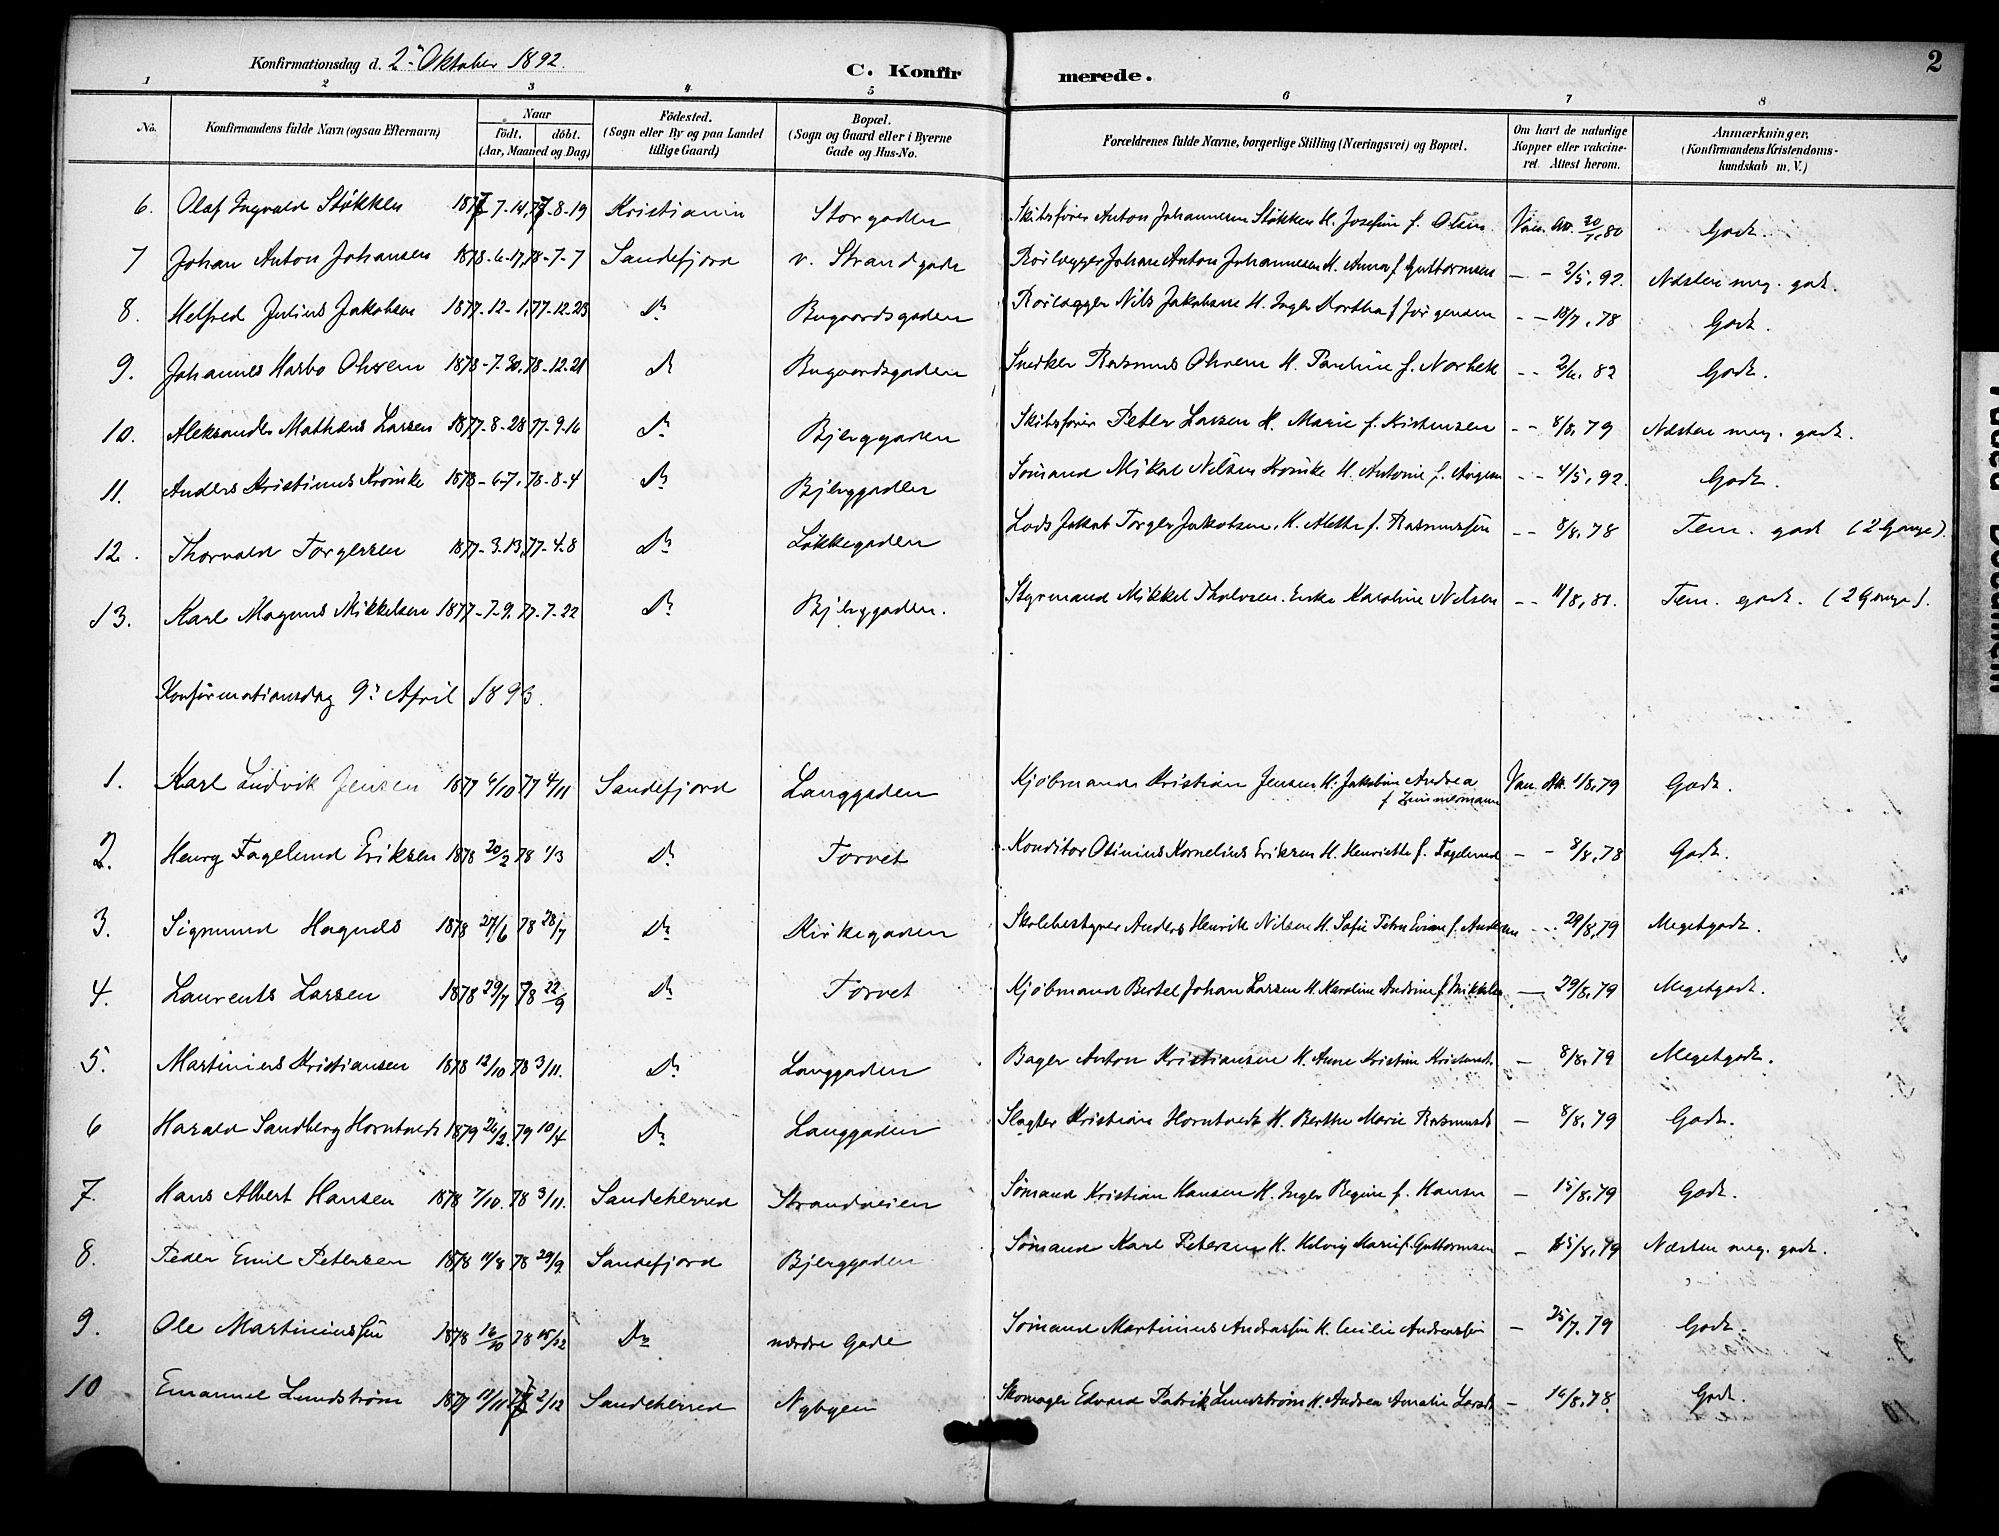 2
Konfirmationsdag d. 2. Oktober 1892.
C. Konfirmerede.
1 2 3 4 5 6 7 8
No. Konfirmandens fulde Navn (ogsaa Efternavn) Naar født. døbt. (Aar, Maaned og Dag) Fødested. (Sogn eller By og paa Landet tillige Gaard) Bopæl. (Sogn og Gaard eller i Byerne Gade og Hus-No. Forældrenes fulde Navne, borgerlige Stilling (Næringsvei) og Bopæl. Om havt de naturlige Kopper eller vakcineret. Attest herom. Anmærkninger, (Konfirmandens Kristendomskundskab m. V.)
6. Olaf Ingvald Støkken 1877-7-14, 77-8-19 Kristiania Storgaden Skibsfører Anton Johannesen Støkken H. Josefine f. Olsen Vac. Att. 80 Godt.
7 Johan Anton Johansen 1878-6-17, 78-7-7 Sandefjord v. Strandgade Johan Anton Johannesen H. Anna f. Guttormsen - - 2/5, 92. Næsten meg. godt.
8. Helfred Julius Jakobsen 1877-12-1, 77-12-23 Do Bugaardsgaden Nils Jakobsen H. Inger Dorthea f. Jørgensen - - 18/7, 78 Godt.
9. Johannes Harbo Ohrem 1878-7-30, 78-12-21 Do Bugaardsgaden Snedker Rasmus Ohrem H. Pauline f. Norbek - - 82 Godt.
10. Aleksander Mathæus Larsen 1877-8-28, 77-9-16 Do Bjerggaden Skibsfører Peter Larsen H. Marie f. Kristensen - - 8/8, 79 Næsten meg. godt.
11. Anders Kristinus Kronike 1878-6-7, 78-8-4 Do Bjerggaden Sømand Mikal Nilsen Kronike H. Antonie f. - - 4/5, 92. Godt.
12. Thorvald Torgersen 1877-3-13, 77-4-8 Do Løkkegaden Lods Jakob Torger Jakobsen H. Alethe f. Rasmussen - - 8/8, 78 Tem. godt (2 Gange).
13. Karl Magnus Mikkelsen 1877-7-9, 77-7-22 Do Bjerggaden. Styrmand Mikkel Tholvsen. Enke Karoline Nilsen - - 11/8, 80. Tem. godt. (2 Gange).
Konfirmationsdag 9. April 1893.
1. Karl Ludvik Jensen 1877 6/10 77 4/11 Sandefjord Langgaden Kjøbmand Kristian Jensen H. Jakobine Andrea f. Zimmermann Vac. Att. 1/8, 79 Godt.
2. Henry Fagelund Eriksen 1878 20/2 78 1/3 Do Torvet Konditor Otinius Kornelius Eriksen H. Henriette f. Fagelund - - 8/8, 78 Godt.
3. Sigmund Hagnæs 1878 27/6 78 28/7 Do Kirkegaden Skolebestyrer Anders Henrik Nilsen H. Sofie Petra f. Andersen - - 29/8, 79 Megetgodt.
4. Laurents Larsen 1878 29/7 78 22/9 Do Torvet Kjøbmand Bertel Johan Larsen H. Karoline Andrine f. Mikkelsen - 29/8, 79 Megetgodt.
5. Martinius Kristiansen 1878 12/10 78 3/11. Do Langgaden Bager Anton Kristiansen H. Anne Kristine - 8/8, 79 Megetgodt.
6 Harald Sandberg Horntvedt 1879 26/2. 79 10/4 Do Langgaden Slagter Kristian Horntvedt H. Berthe Marie Rasmusdt - 8/8, 79 Godt.
7. Hans Albert Hansen 1878 7/10. 78 3/11. Sandeherred Strandveien Sømand Kristian Hansen H. Inger Regine f. Hansen - 15/8, 79 Godt.
8. Peder Emil Petersen 1878 11/8 78 29/9. Sandefjord Bjerggaden Sømand Karl Petersen H. Helvig Marie f. Guttormsen - 15/8, 79 Næsten meg. godt.
9. Ole Martiniussen 1878 16/10 78 15/12 Do nordre Gade Sømand Martinius Andreassen H. Cecilie Andreassen - 25/7, 79 Godt.
10 Emanuel Lundstrøm 1877 11/11 77 2/12 Sandeherred Nybyen Skomager Edvard Patrik Lundstrøm H. Andrea Amalie Larsdt - 16/8, 78. Godt.